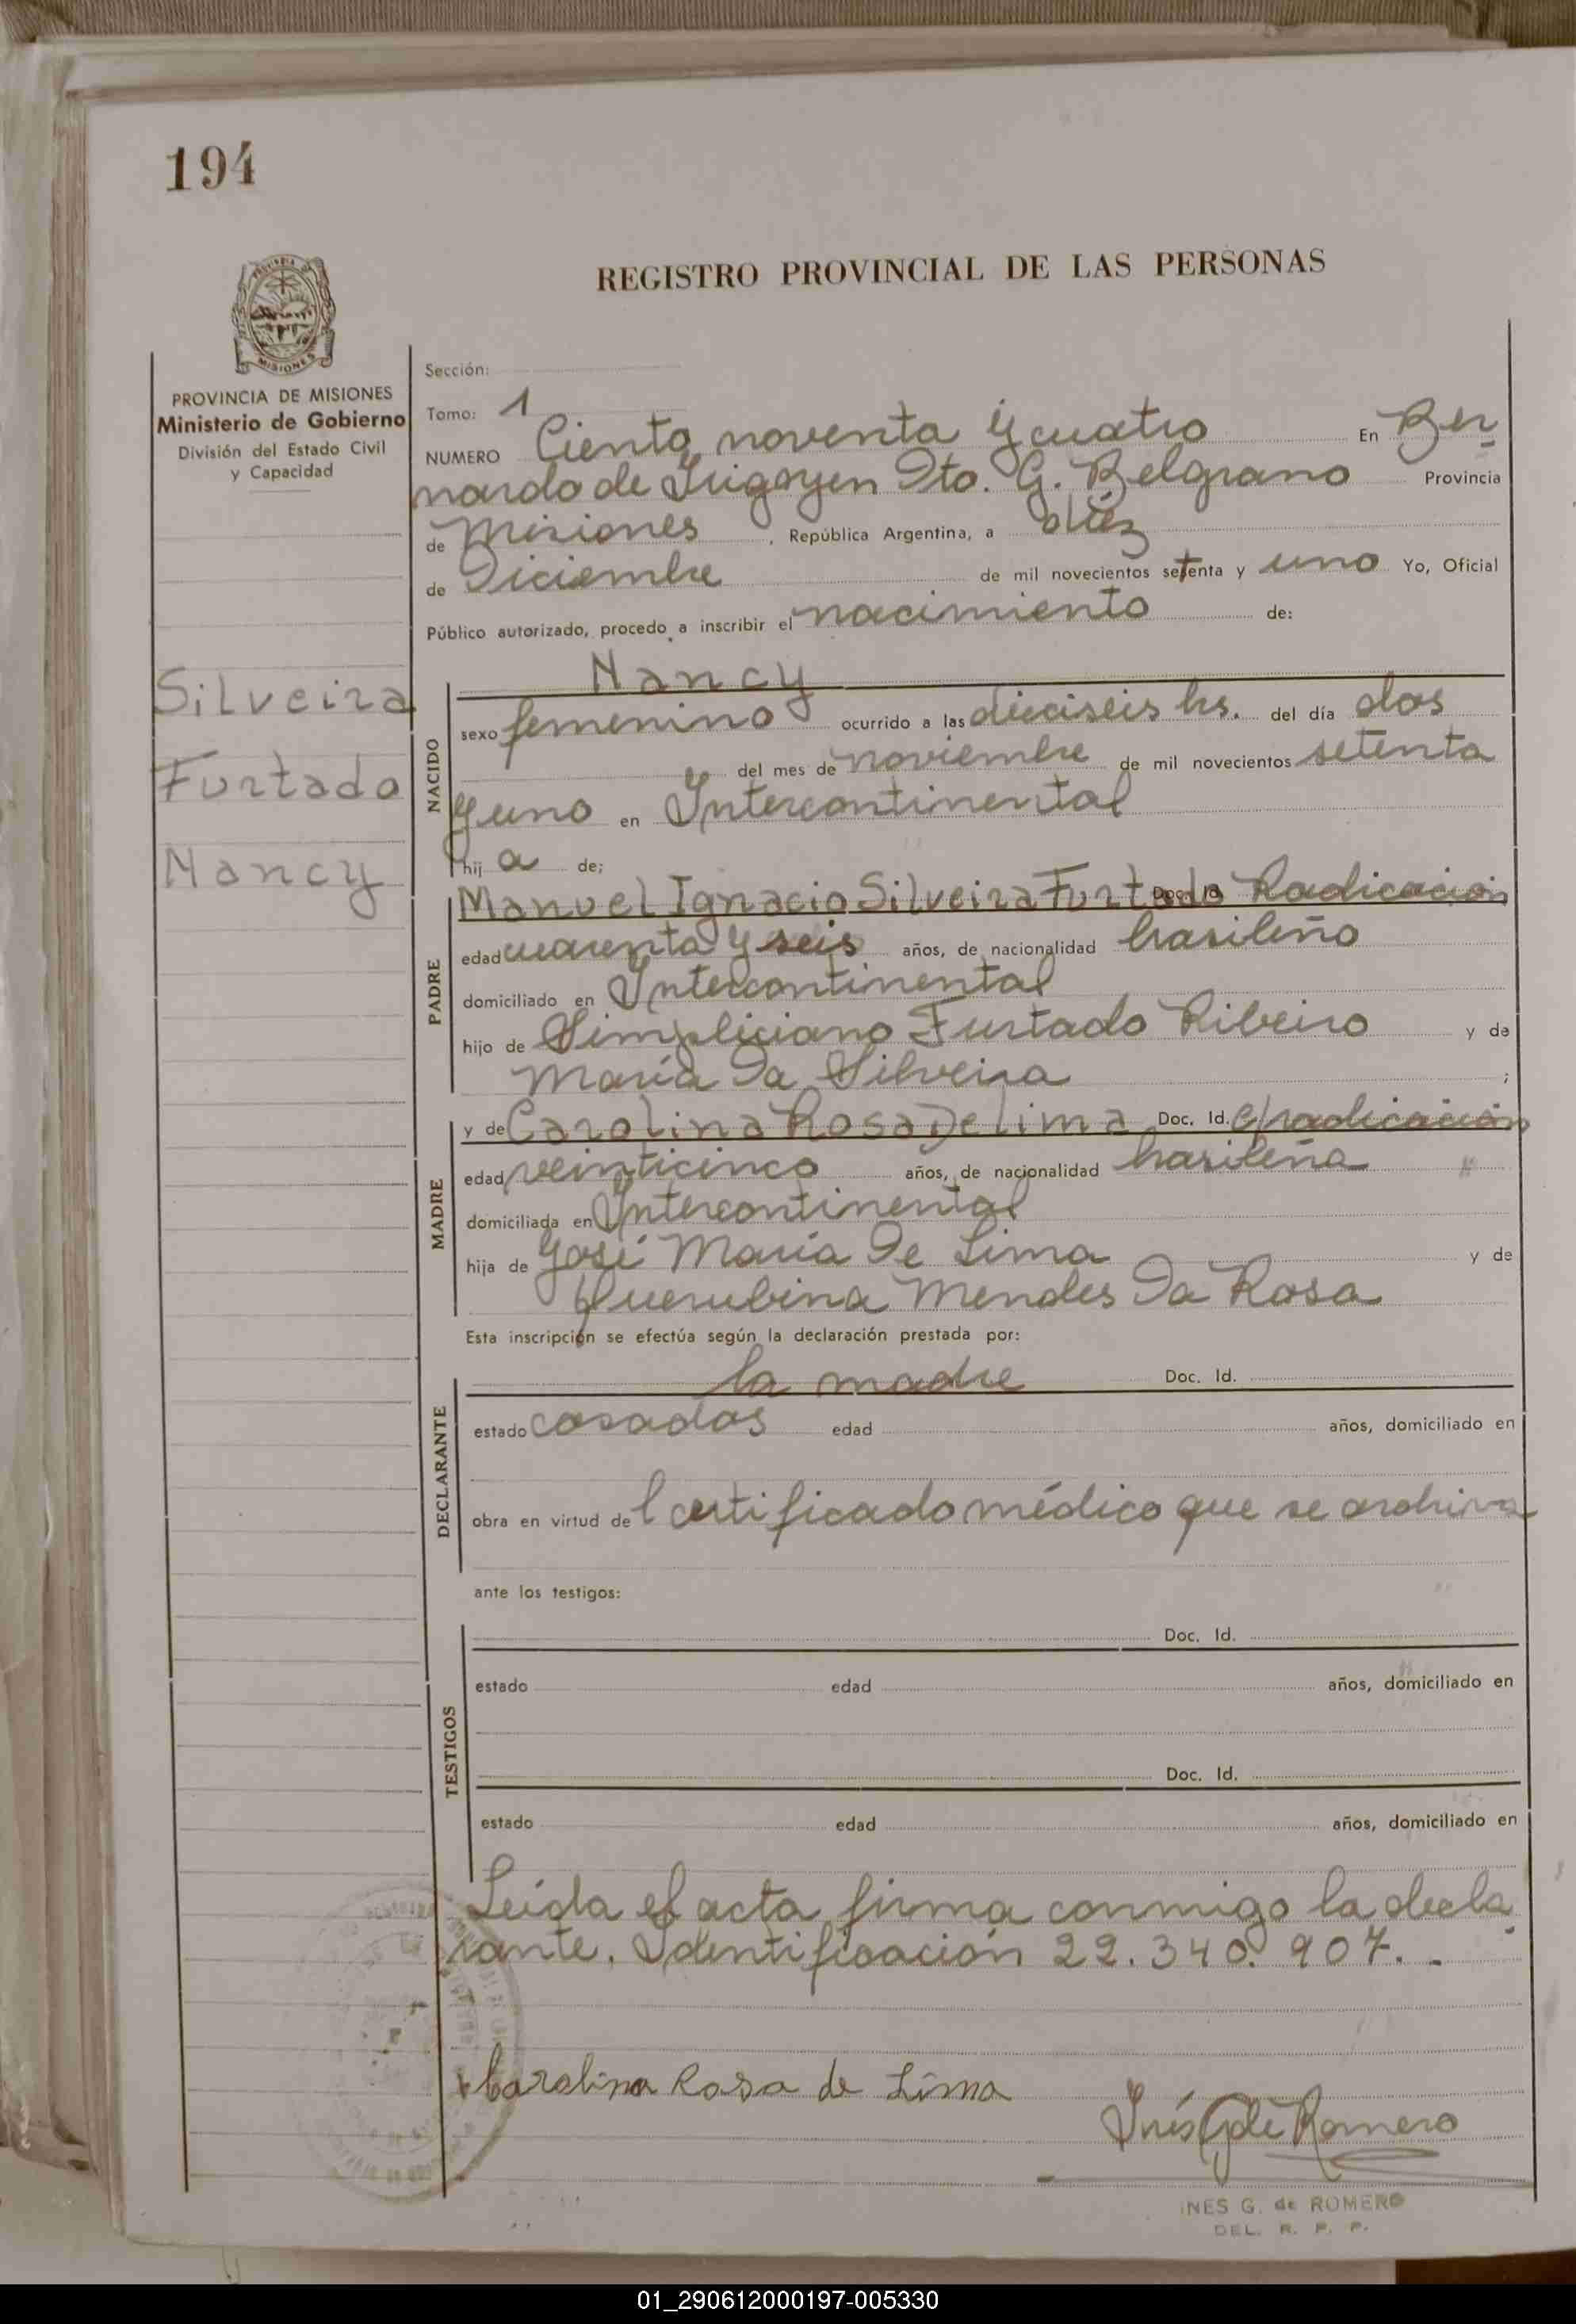 194
REGISTRO PROVINCIAL DE LAS PERSONAS
MISIONES
PROVINCIA DE MISIONES
Ministerio de Gobierno
División del Estado Civil
y Capacidad
Silveira
Furtado
Nancy
Sección:
Tomo: 1
NUMERO Ciento noventa y cuatro En Ber
nardo de Irigoyen Dto. G. Belgrano Provincia
de Misiones, República Argentina, a diéz
de Diciembre de mil novecientos setenta y uno Yo, Oficial
Público autorizado, procedo a inscribir el nacimiento de:
NACIDO
Nancy
sexo femenino ocurrido a las dieciseis hs. del día dos
del mes de noviembre de mil novecientos setenta
y uno en Intercontinental
hij a de;
PADRE
Manuel Ignacio Silveira Furtado Doc. Id. Radicación
edad cuarenta y seis años, de nacionalidad brasileño
domiciliado en Intercontinental
hijo de Simpliciano Furtado Ribeiro y de
María Da Silveira ;
MADRE
y de Carolina Rosa De Lima Doc. Id. C/radicación
edad veinticinco años, de nacionalidad brasileña
domiciliada en Intercontinental
hija de José María De Lima y de
Querubina Mendes Da Rosa
Esta inscripción se efectúa según la declaración prestada por:
DECLARANTE
la madre Doc. Id.
estado casados edad años, domiciliado en
obra en virtud del certificado médico que se archiva
ante los testigos:
TESTIGOS
Doc. Id.
estado edad años, domiciliado en
Doc. Id.
estado edad años, domiciliado en
Leída el acta firma conmigo la decla
rante. Identificación 22.340.907.-
Carolina Rosa de Lima
Inés G de Romero
INES G. de ROMERO
DEL. R. P. P.
01_290612000197-005330